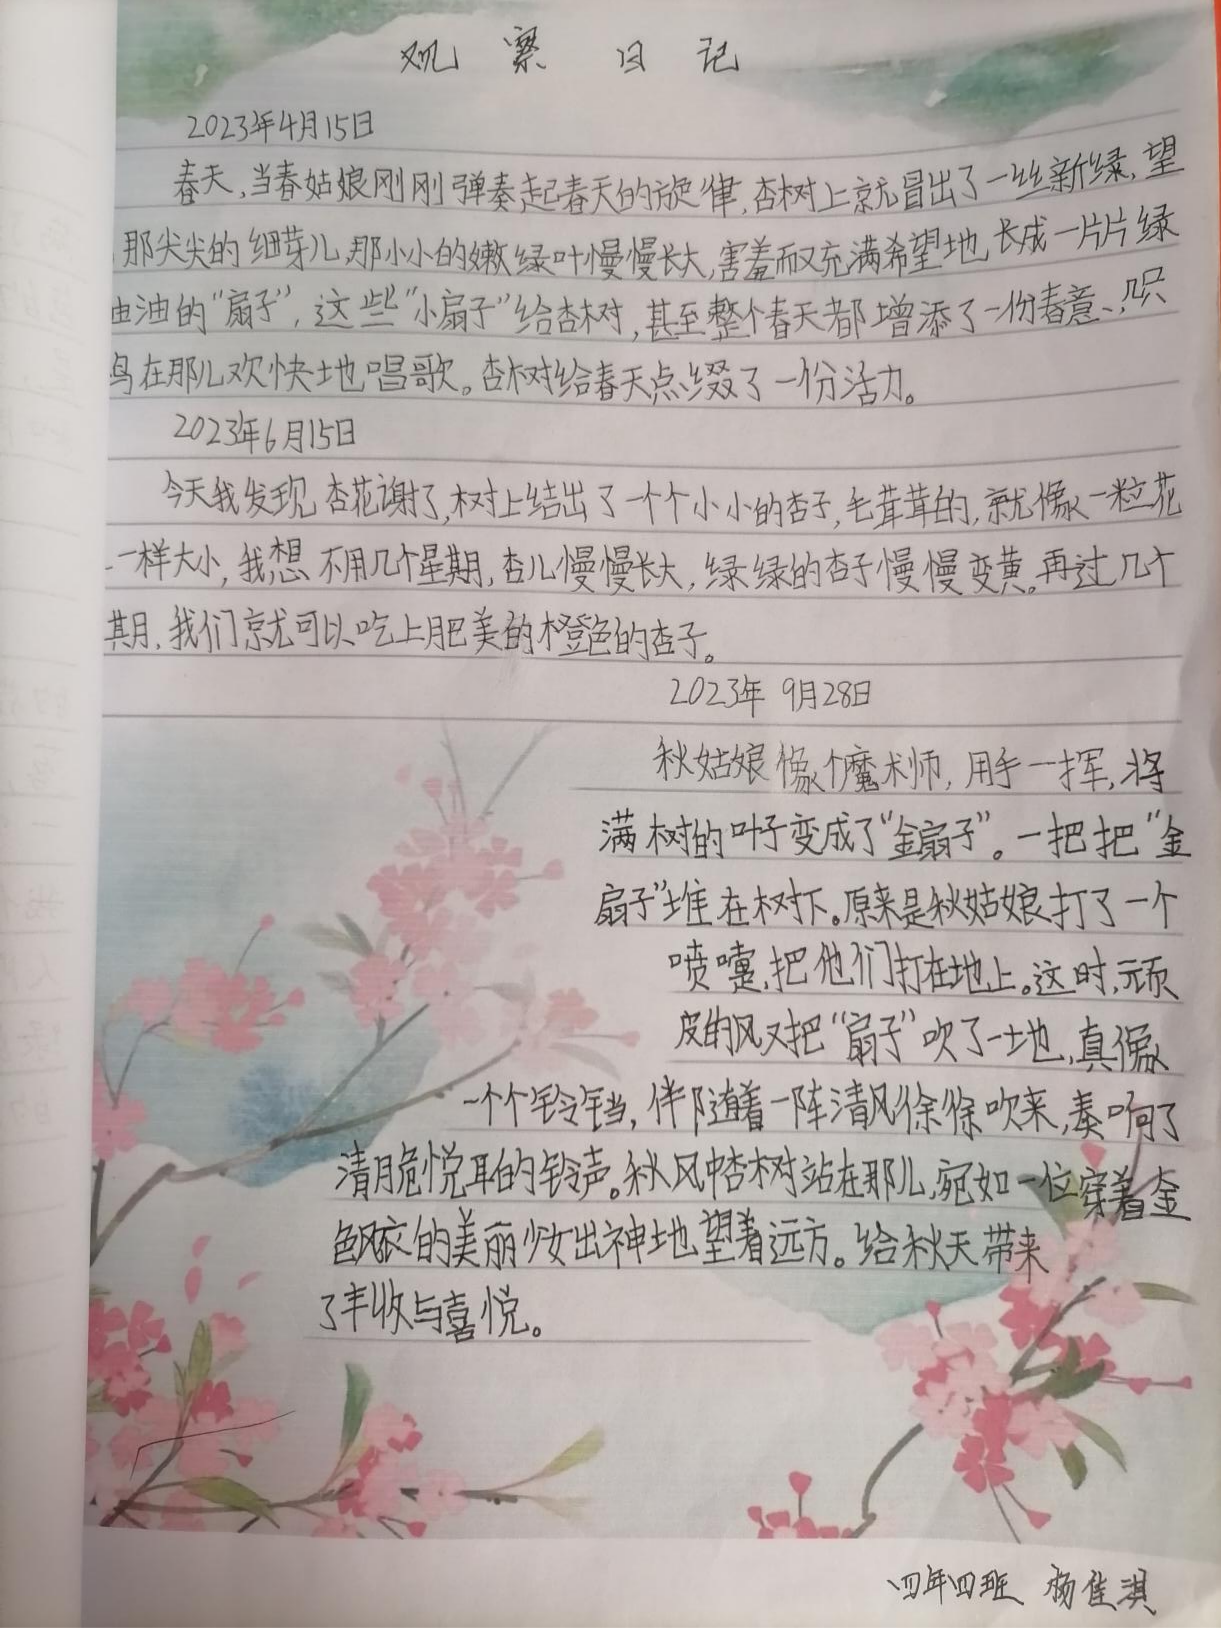 观察日记
2023年4月15日
春天,当春姑娘刚刚弹奏起春天的旋律,杏树上就冒出了一丝新绿,望
那尖尖的细芽儿,那小小的嫩绿叶慢慢长大,害羞而又充满希望地长成一片片绿
油油的“扇子”,这些“小扇子”给杏树,甚至整个春天都增添了一份春意,几只
鸟在那儿欢快地唱歌。杏树给春天点缀了一份活力。
2023年6月15日
今天我发现杏花谢了,树上结出了一个个小小的杏子,毛茸茸的,就像一粒花
一样大小,我想不用几个星期,杏儿慢慢长大,绿绿的杏子慢慢变黄。再过几个
期,我们就可以吃上肥美的橙色的杏子。
2023年9月28日
秋姑娘像个魔术师,用手一挥,将
满树的叶子变成了“金扇子”。一把把“金
扇子”堆在树下。原来是秋姑娘打了一个
喷嚏,把他们打在地上。这时,顽
皮的风又把“扇子”吹了一地,真像
一个个铃铛,伴随着一阵清风徐徐吹来,奏响了
清脆悦耳的铃声。秋风中杏树站在那儿,宛如一位穿着金
色风衣的美丽少女出神地望着远方。给秋天带来
了丰收与喜悦。
四年四班 杨佳淇